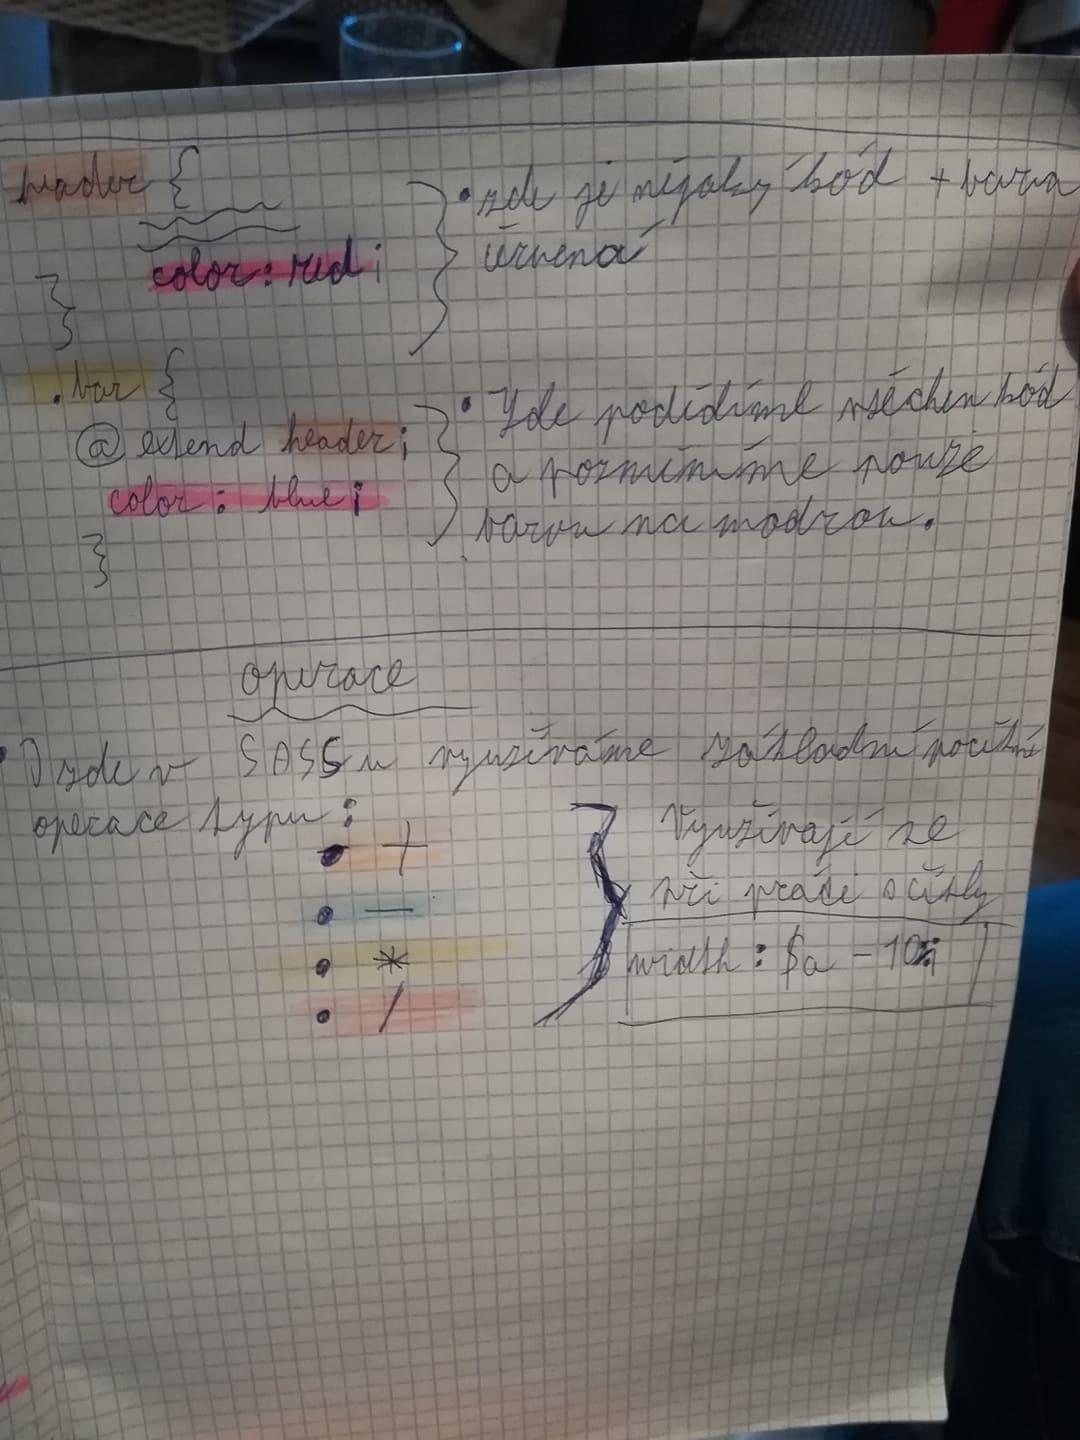 header {
color: red;
}
• zde je nějaký kód + barva
červená
.bar {
@extend header;
color: blue;
}
• Zde podědíme všechen kód
a pozměníme pouze
barvu na modrou.
operace
• I zde v SASSu využíváme základní početní
operace typu:
• +
• —
• *
• /
Využívají se
při práci s čísly
width: $a - 10%;